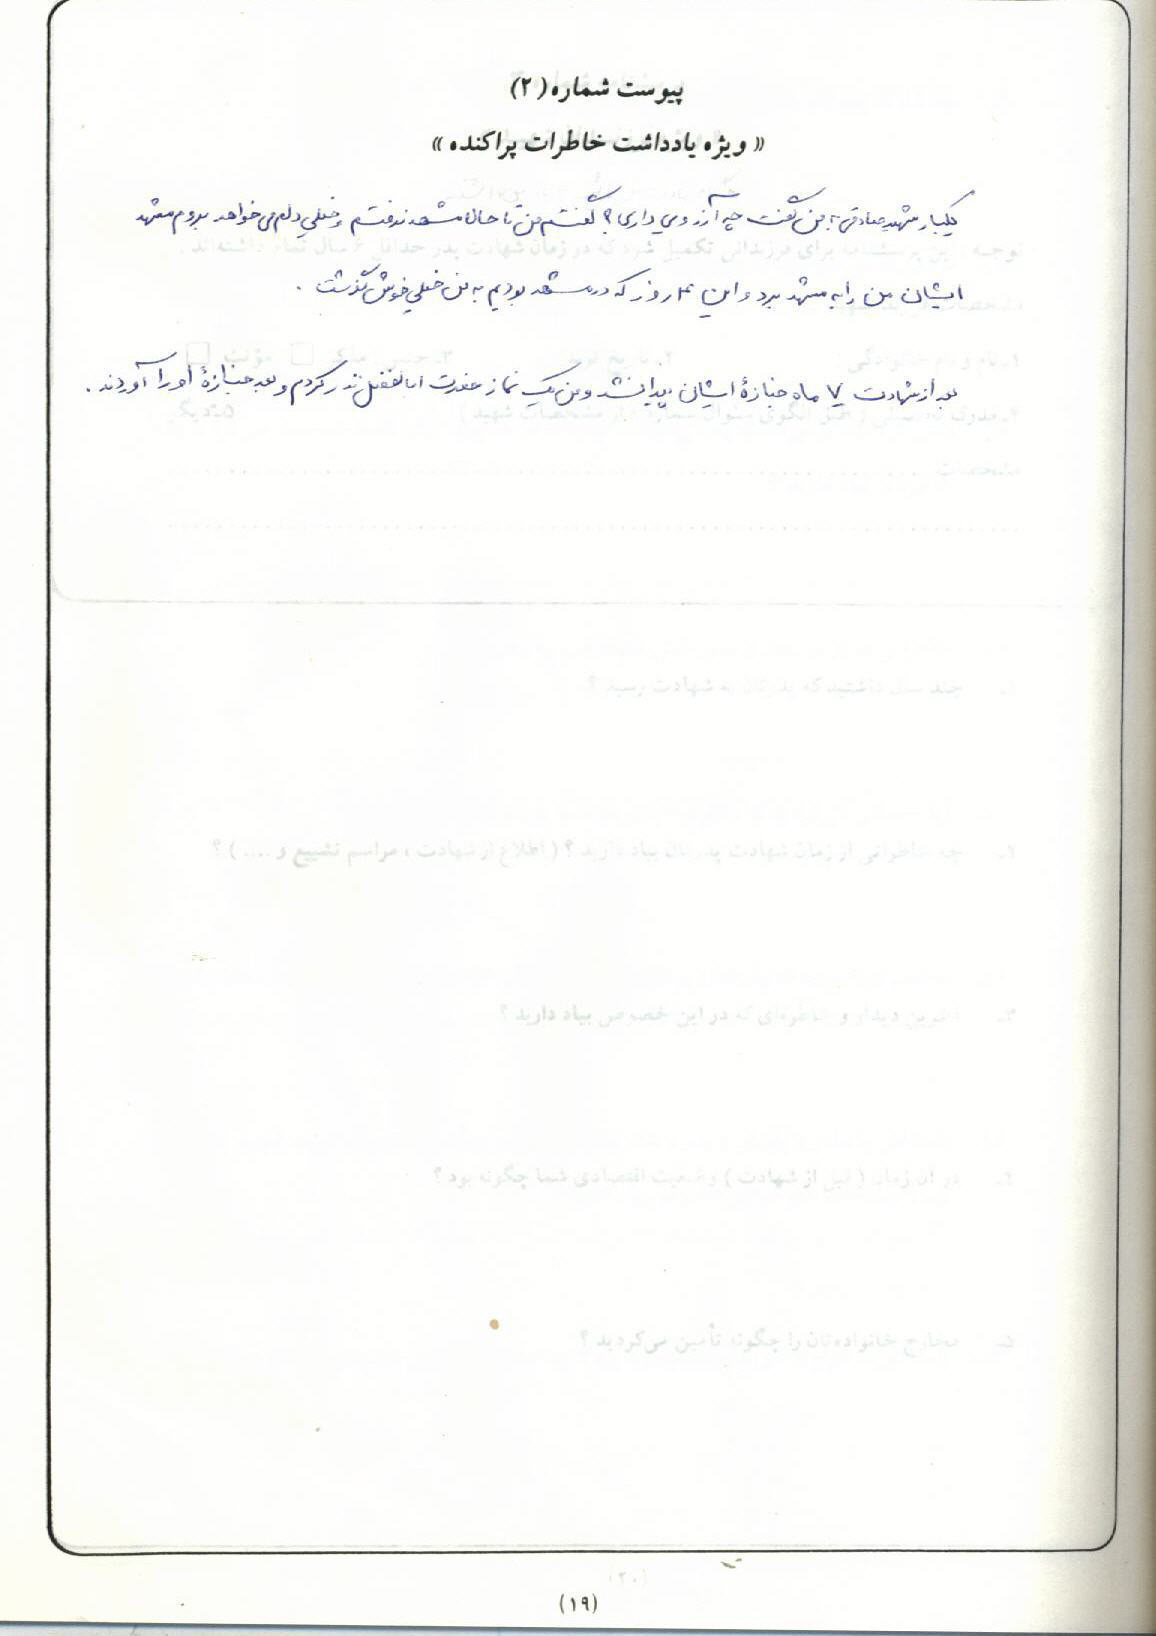 پیوست شماره (۲)
« ویژه یادداشت خاطرات پراکنده »
یکبار شهید صادقی به من گفت چه آرزویی داری؟ گفتم من تا حالا مشهد نرفتم و خیلی دلم می خواهد بروم مشهد
ایشان من را به مشهد برد و این روز که در مشهد بودیم به من خیلی خوش گذشت .
بعد از شهادت ۷ ماه جنازهٔ ایشان پیدا نشد و من یک نماز حضرت اباالفضل نذر کردم و بعد جنازهٔ او را آوردند .
(۱۹)